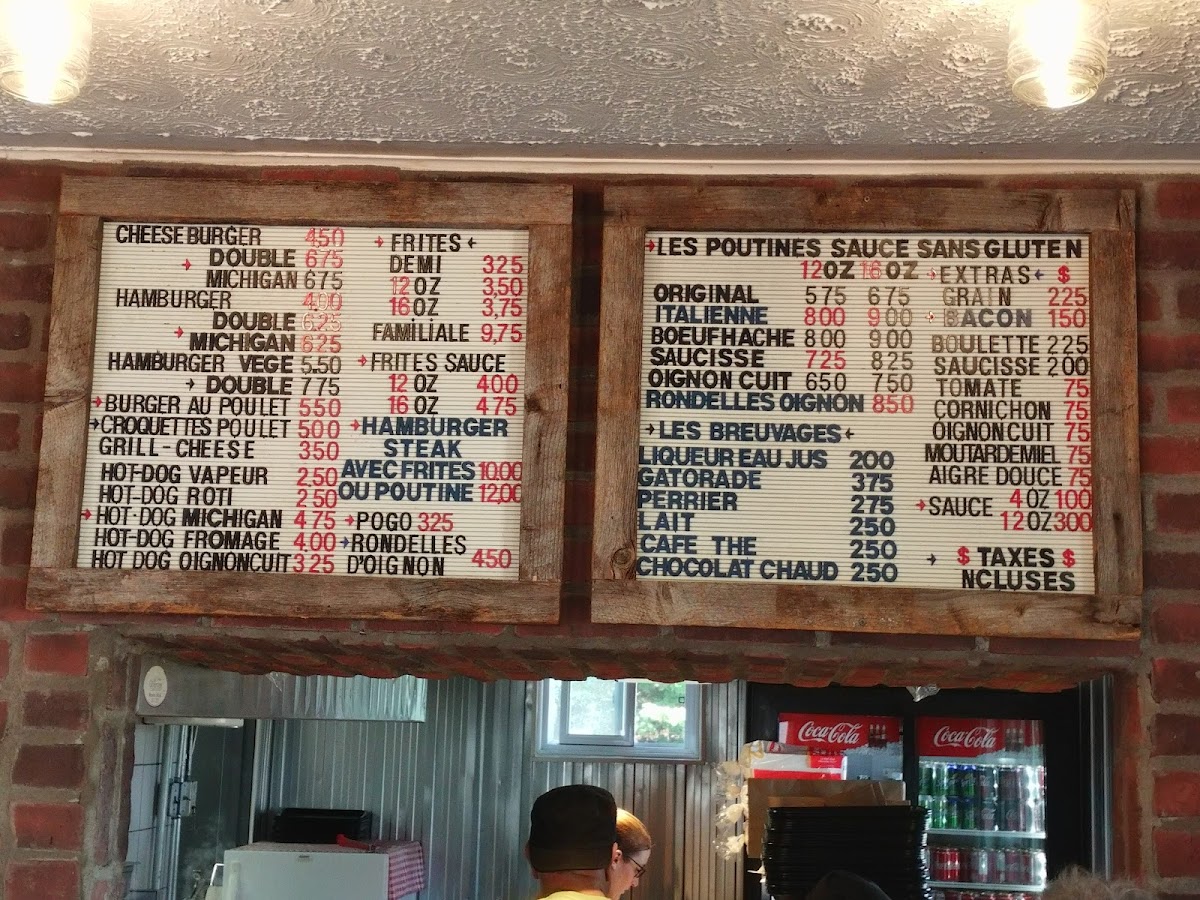 CHEESEBURGER 450
DOUBLE 675
MICHIGAN 675
HAMBURGER 400
DOUBLE 625
MICHIGAN 625
HAMBURGER VEGE 5.50
DOUBLE 775
BURGER AU POULET 550
CROQUETTES POULET 500
GRILL-CHEESE 350
HOT-DOG VAPEUR 2,50
HOT-DOG ROTI 250
HOT-DOG MICHIGAN 4.75
HOT-DOG FROMAGE 4.00
HOT DOG OIGNONCUIT 3.25
FRITES
DEMI 325
12 OZ 3,50
16 OZ 3,75
FAMILIALE 9,75
FRITES SAUCE
12 OZ 400
16 OZ 475
HAMBURGER
STEAK
AVEC FRITES 10,00
OU POUTINE 12,00
POGO 325
RONDELLES
D'OIGNON 450
LES POUTINES SAUCE SANS GLUTEN
12OZ 16OZ
ORIGINAL 575 675
ITALIENNE 800 900
BOEUFHACHE 800 900
SAUCISSE 725 825
OIGNON CUIT 650 750
RONDELLES OIGNON 850
LES BREUVAGES
LIQUEUR EAU JUS 200
GATORADE 375
PERRIER 275
LAIT 250
CAFE THE 250
CHOCOLAT CHAUD 250
EXTRAS $
GRAIN 225
BACON 150
BOULETTE 225
SAUCISSE 200
TOMATE 75
CORNICHON 75
OIGNONCUIT 75
MOUTARDEMIEL 75
AIGRE DOUCE 75
SAUCE 4OZ 100
12OZ 300
$ TAXES $
NCLUSES
Coca-Cola
Coca-Cola